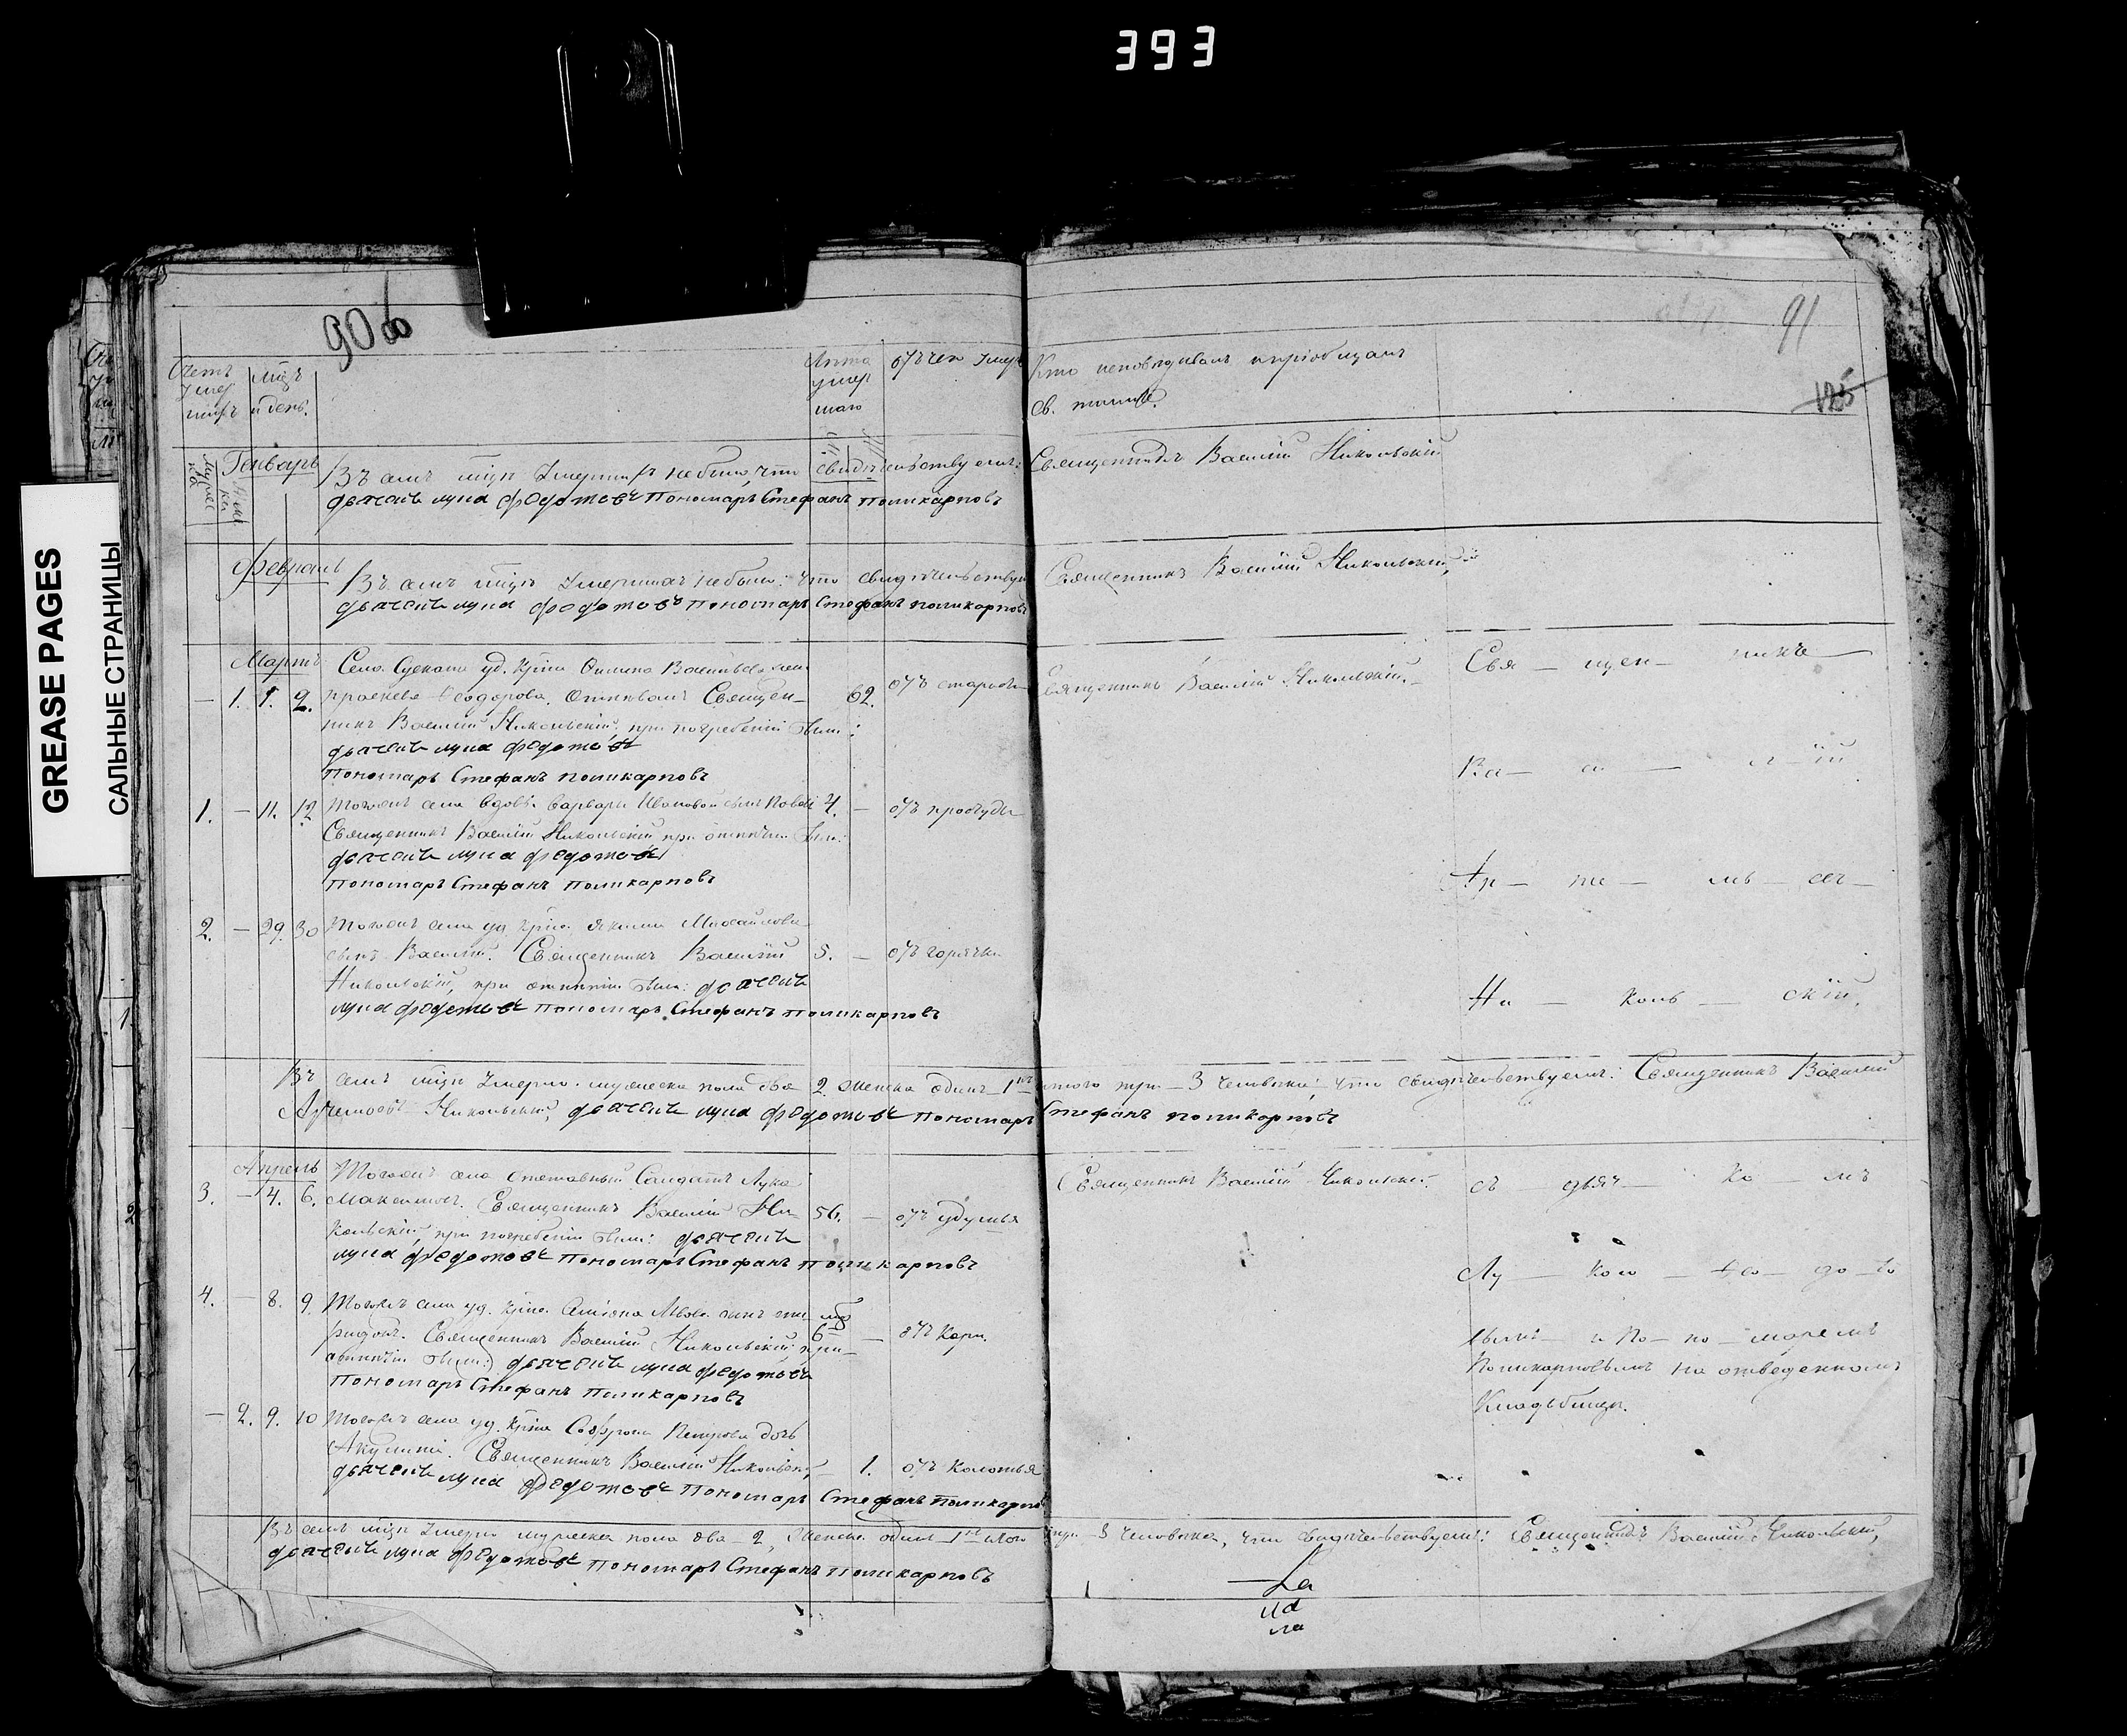 393
GREASE PAGES
САЛЬНЫЕ СТРАНИЦЫ
90об
91
125
Счетъ
умер
шихъ
мцъ
и день.
Лѣта
умер
шаго
отъ чего умер
Кто исповѣдывалъ и пріобщалъ
св. тайнъ.
Генварь
Въ семъ мцѣ умершихъ небыло, что свидѣтельствуемъ: Священникъ Василій Никольскій
дьячекъ лука федотовъ пономарь Стефанъ поликарповъ
Февраль
Въ семъ мцѣ умершихъ небыло: что свидѣтельствуемъ Священникъ Василій Никольскій,
дьячекъ лука федотовъ пономарь Стефанъ поликарповъ
Мартъ
Села уд. крна Василье
— 1. 1. 2. Ѳеодорова. Отпѣвалъ Священ— 62. отъ старости Священникъ Василій Никольскій.
никъ Василій Никольскій, при погребеніи были:
дьячекъ лука федотовъ
пономарь Стефанъ поликарповъ
1. — 11. 12 Тогожъ села вдовы Варвары Ивановой сынъ 4. — отъ простуды
Священникъ Василій Никольскій при отпѣтіи были:
дьячекъ лука федотовъ
пономарь Стефанъ поликарповъ
2. — 29. 30 Тогожъ села уд крна Якима Михайлова
сынъ Василій. Священникъ Василій 5. — отъ горячки
Никольскій, при отпѣтіи были: дьячекъ
лука федотовъ пономарь Стефанъ поликарповъ
Свя — щен — никъ
Ва — си — л — ій
Ар — те — мь — евъ
Ни — коль — скій,
Въ семъ мцѣ умерло. мужеска пола два 2 женска одинъ 1 итого три — 3 человѣка; что свидѣтельствуемъ: Священникъ Василій
Артемьевъ Никольскій, дьячекъ лука федотовъ пономарь Стефанъ поликарповъ
Апрель
Тогожъ села отставный Салдатъ Лука
3. — 4. 6. Максимовъ. Священникъ Василій Ни— 56. — отъ удушья
кольскій, при погребеніи были: дьячекъ
лука федотовъ пономарь Стефанъ поликарповъ
Священникъ Василій Никольскій.
4. — 8. 9. Тогожъ села уд. крна. Львова сынъ Спи мц
ридонъ. Священникъ Василій Никольскій при— 6 — отъ Кори.
отпѣтіи были: дьячекъ лука федотовъ
пономарь Стефанъ поликарповъ
— 2. 9. 10 Тогожъ села уд. крна Софрона Петрова дочь
Акулина. Священникъ Василій Никольскій, — 1. отъ Колотья
дьячекъ лука федотовъ пономарь Стефанъ поликарповъ
съ — дьяч — ко — мъ
Лу — кою — Ѳе — до — то
вымъ — и По — но — маремъ
Поликарповымъ на отведенномъ
Кладбищѣ.
Въ семъ мцѣ умерло мужеска пола два — 2, женска одинъ 1 итого три — 3 человѣка, что свидѣтельствуемъ: Священникъ Василій Никольскій,
дьячекъ лука федотовъ пономарь Стефанъ поликарповъ